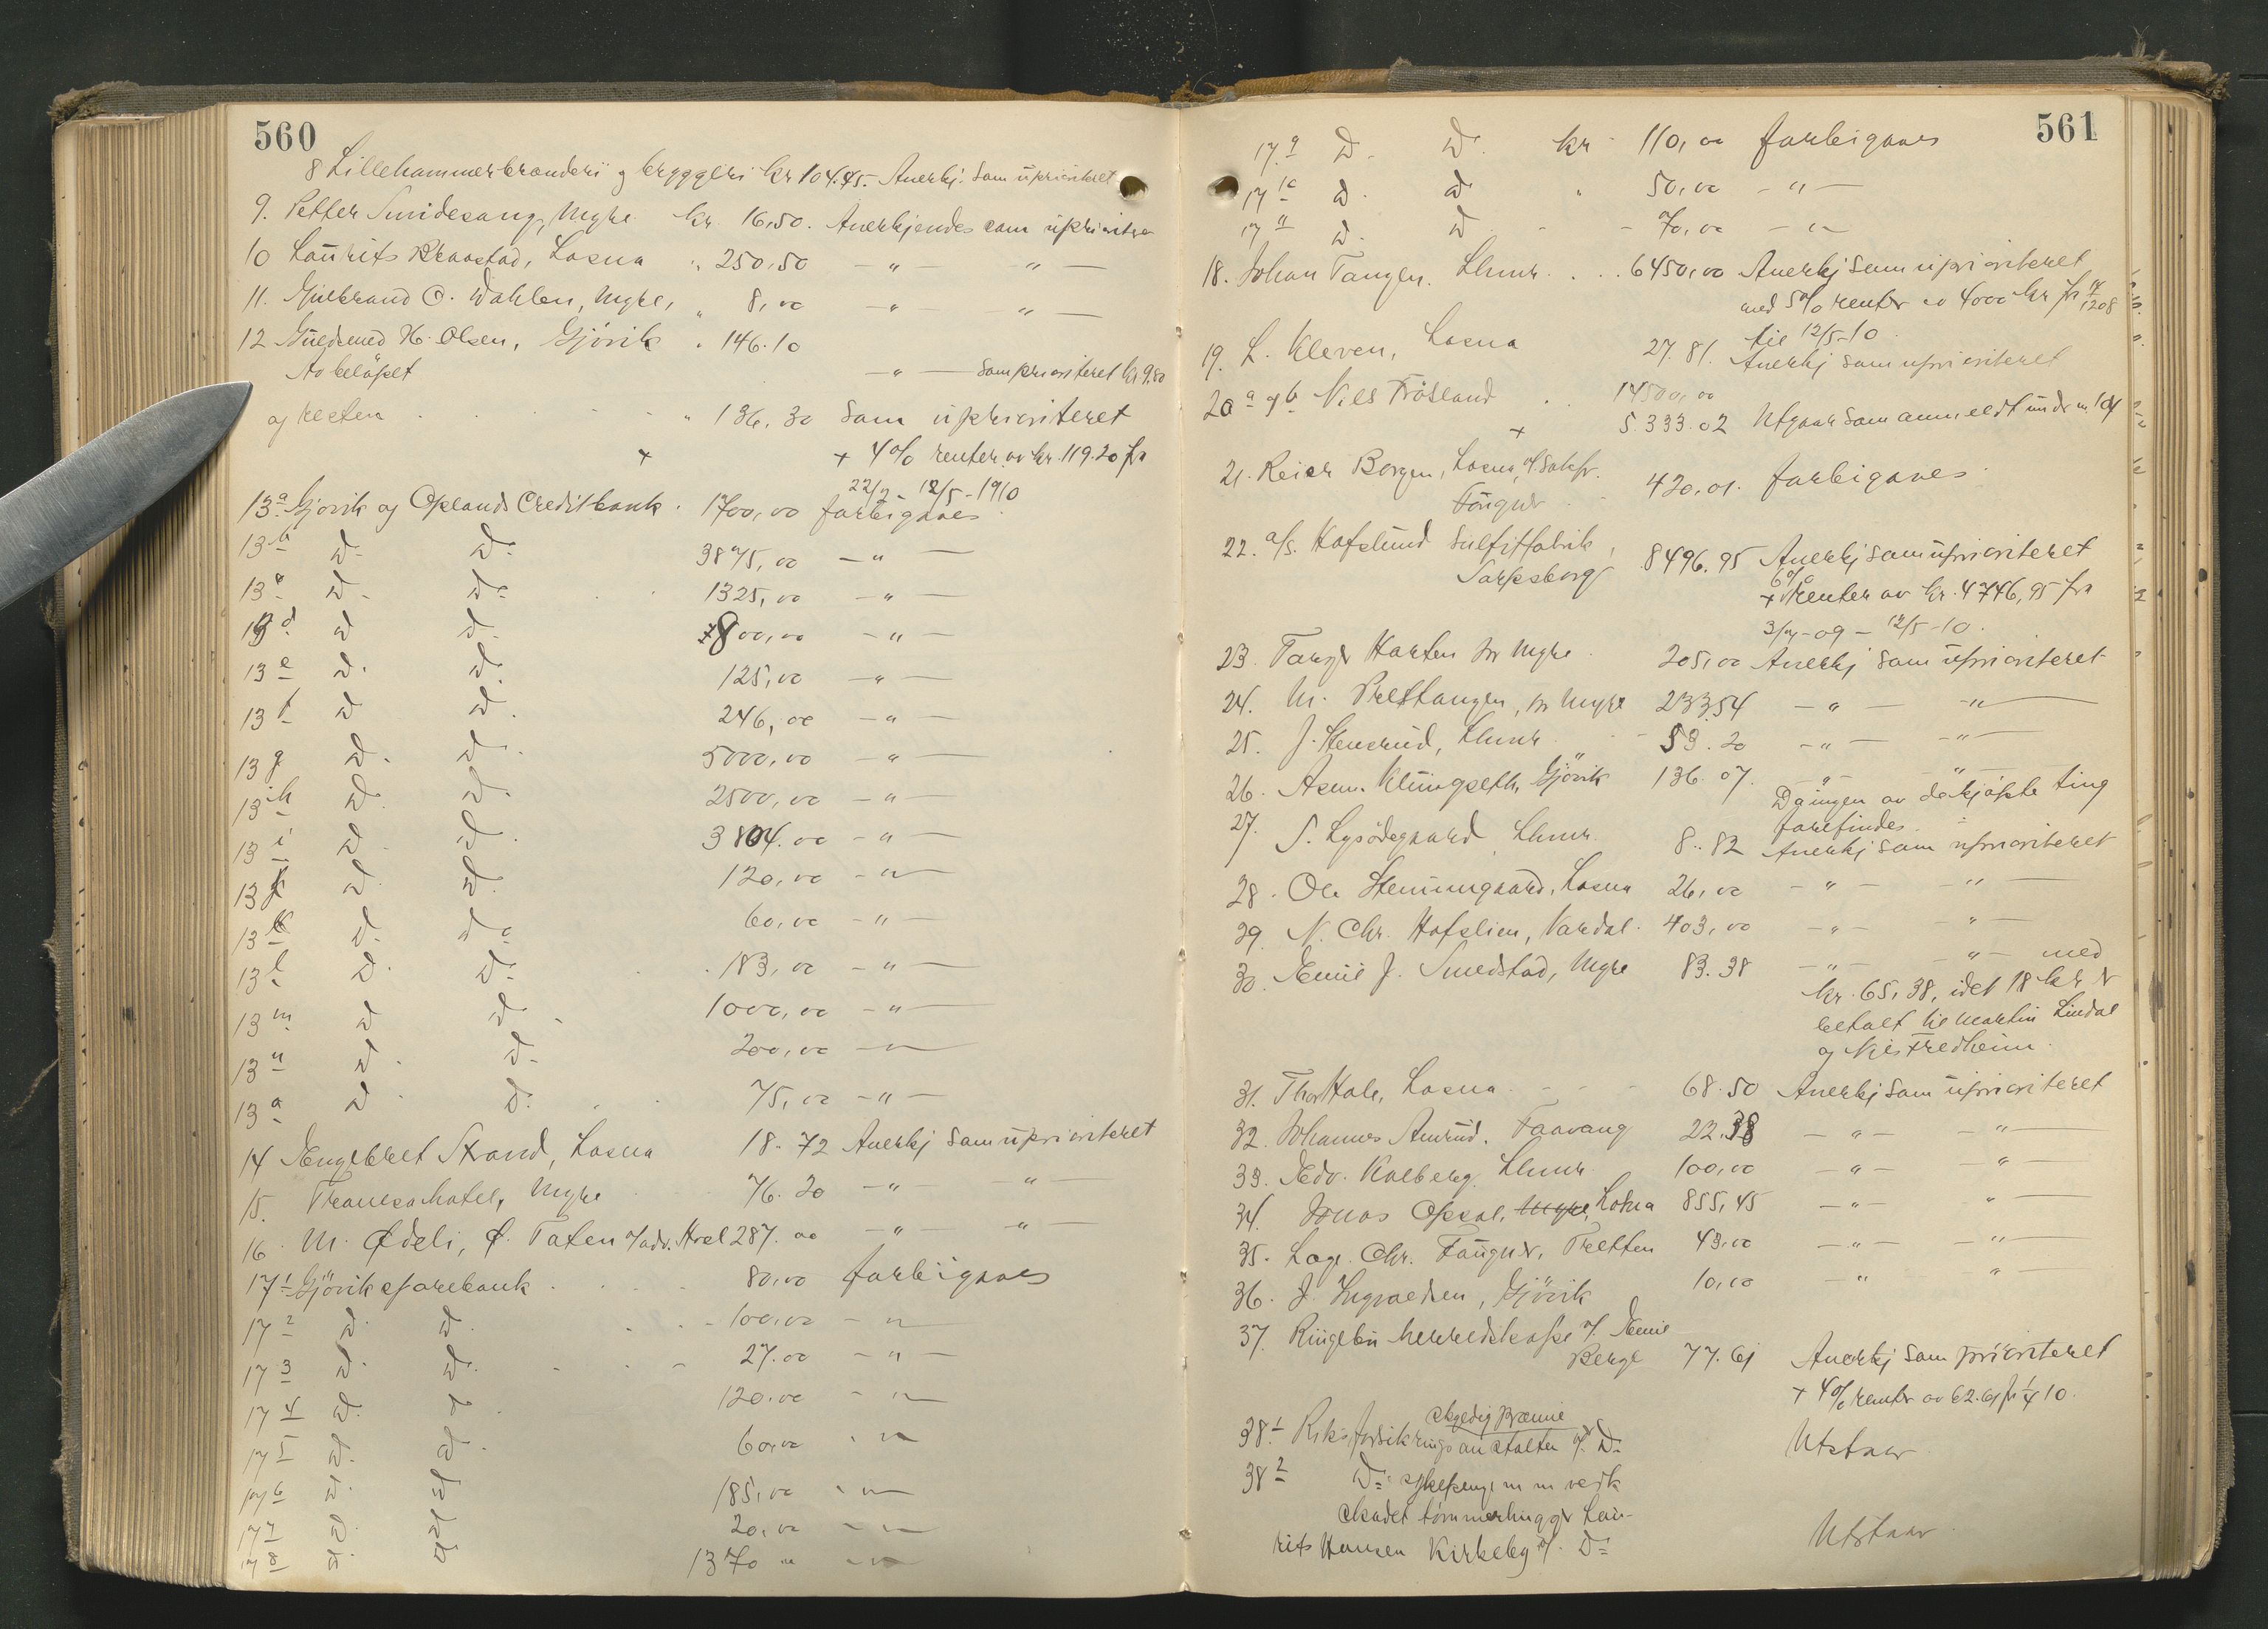 560
8 Lillehammer brænderi og bryggeri kr 104.45. Anerkj. som uprioritert
9. Petter Smidesang, Myre kr. 16,50. Anerkjendes som uprioriter
10 Laurits Kraastad, Losna " 250,50 — " — " —
11. Gulbrand O. Dahlen, Myre, " 8,00 — " — " —
12 Guldsmed H. Olsen, Gjövik " 146.10
Av belöpet — " — som prioriteret kr 9.80
og resten " 136,30 som uprioriteret
+ + 4% renter av kr. 119.20 fra
22/2 - 12/5 - 1910
13a Gjövik og Oplands Creditbank. 1700,00 forbigaaes
13b Do Do 3875,00 — " —
13c Do Do 1325,00 — " —
13d Do Do 800,00 — " —
13e Do Do 125,00 — " —
13f Do Do 246,00 — " —
13g Do Do 5000,00 — " —
13h Do Do 2500,00 — " —
13i Do Do 3804.00 — " —
13j Do Do 120,00 — " —
13k Do Do 60,00 — " —
13l Do Do 183,00 — " —
13m Do Do 1000,00 — " —
13n Do Do 200,00 — " —
13o Do Do 75,00 — " —
14 Engebret Strand, Losna 18.72 Anerkj som uprioriteret
15. Fransahotel, Myre 76.20 — " — " —
16. M. Ødeli, Ø. Toten v/adv. Hoel 287.00 — " — " —
17 1 Gjövik sparebank 80,00 forbigaaes
17 2 Do Do 100,00 — " —
17 3 Do Do 27.00 — " —
17 4 Do Do 120.00 — " —
17 5 Do Do 60,00 — " —
17 6 Do Do 185,00 — " —
17 7 Do Do 20,00 — " —
17 8 Do Do 1370 " — " —
561
17 9 Do Do kr 110,00 forbigaaes
17 10 Do Do " 50,00 — " —
17 11 Do Do 70,00 — " —
18. Johan Tangen, Lhmr. 6450,00 Anerkj som uprioriteret
med 5% renter av 4000 kr fra
til 12/5-10
19. L. Kleven, Losna 27.81. Anerkj som uprioriteret
20 a og b Nils Fröisland 14500,00
+ 5.333.02 Utgaar som anmeldt under nr. 104
21. Reier Borgen, Losna, v/ Sakfr.
Faugner 420,01. forbigaaes
22. a/s. Hafslund Sulfitfabrik,
Sarpsborg 8496.95 Anerkj som uprioriteret
+ 6% renter av kr. 4746,95 fra
3/7-09 - 12/5-10.
23. Torger Horten pr Myre 205,00 Anerkj som uprioriteret
24. M. Prestangen, pr Myre 233.54 — " — " —
25. J. Stensrud, Lhmr 59.20 — " — " —
26. Asm. Klungseth, Gjövik 136.07. — " — " —
Da ingen av de kjøpte ting
forefindes.
27. S. Lysödegaard Lhmr. 8.82 Anerkj som uprioriteret
28. Ole Stenumgaard, Losna 26,00 — " — " —
29. N. Chr. Hafslien, Vardal. 403,00 — " — " —
30. Emil J. Smedstad, Myre 83.38 — " — " — med
kr. 65,38, idet 18 kr er
betalt til Martin Lindal
og Nils Fredheim.
31. Thor Hole, Losna 68.50 Anerkj som uprioriteret
32. Johannes Amrud. Faavang 22.38 — " — " —
33. Edv. Kalberg, Lhmr 100,00 — " — " —
34. Jonas Opsal, Myre, Losna 855,45 — " — " —
35. Lage Chr. Faugner, Tretten 43,00 — " — " —
36. J. Ingvaldsen, Gjövik 10,00 — " — " —
37. Ringebu herredskasse v/. Emil
Berge 77.61 Anerkj som prioriteret
+ 4% renter av 62.61 fra 1/4 10.
skyldig præmie
38 1 Riksforsikringsanstalten v/. Do Utstaar
38 2 Do sykepenge m m vedk
skadet tömmerhugger Lau-
rits Hansen Kirkeby v/. Do Utstaar